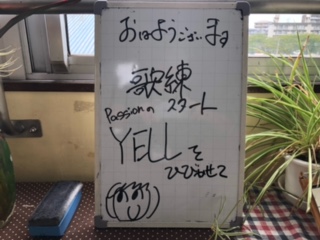 おはようございます
歌練
Passionの スタート
YELLを
ひびかせて